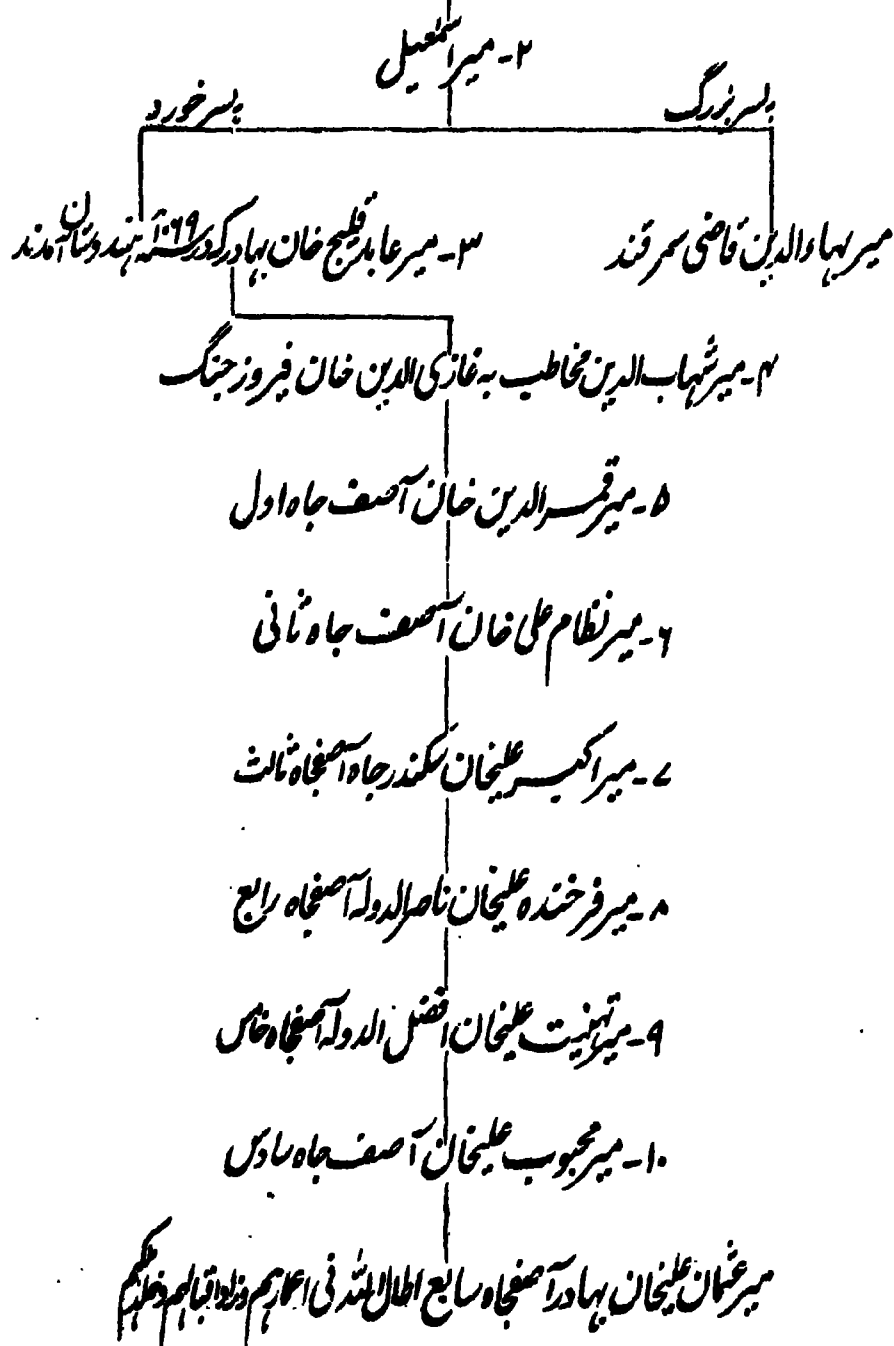 ۲- میر اسمٰعیل
پسر بزرگ پسر خورد
میر بہاء الدین قاضی سمرقند
۳- میر عابد قلیچ خان بہادر کہ در سنہ ۱۰۶۹ ہندوستان آمدند
۴- میر شہاب الدین مخاطب بہ غازی الدین خان فیروز جنگ
۵- میر قمر الدین خان آصف جاہ اول
۶- میر نظام علی خان آصف جاہ ثانی
۷- میر اکبر علیخان سکندر جاہ آصفجاہ ثالث
۸- میر فرخندہ علیخان ناصر الدولہ آصفجاہ رابع
۹- میر تہنیت علیخان افضل الدولہ آصفجاہ خامس
۱۰- میر محبوب علیخان آصف جاہ سادس
میر عثمان علیخان بہادر آصفجاہ سابع اطال اللہ فی اعمارہم وزاد اقبالہم و